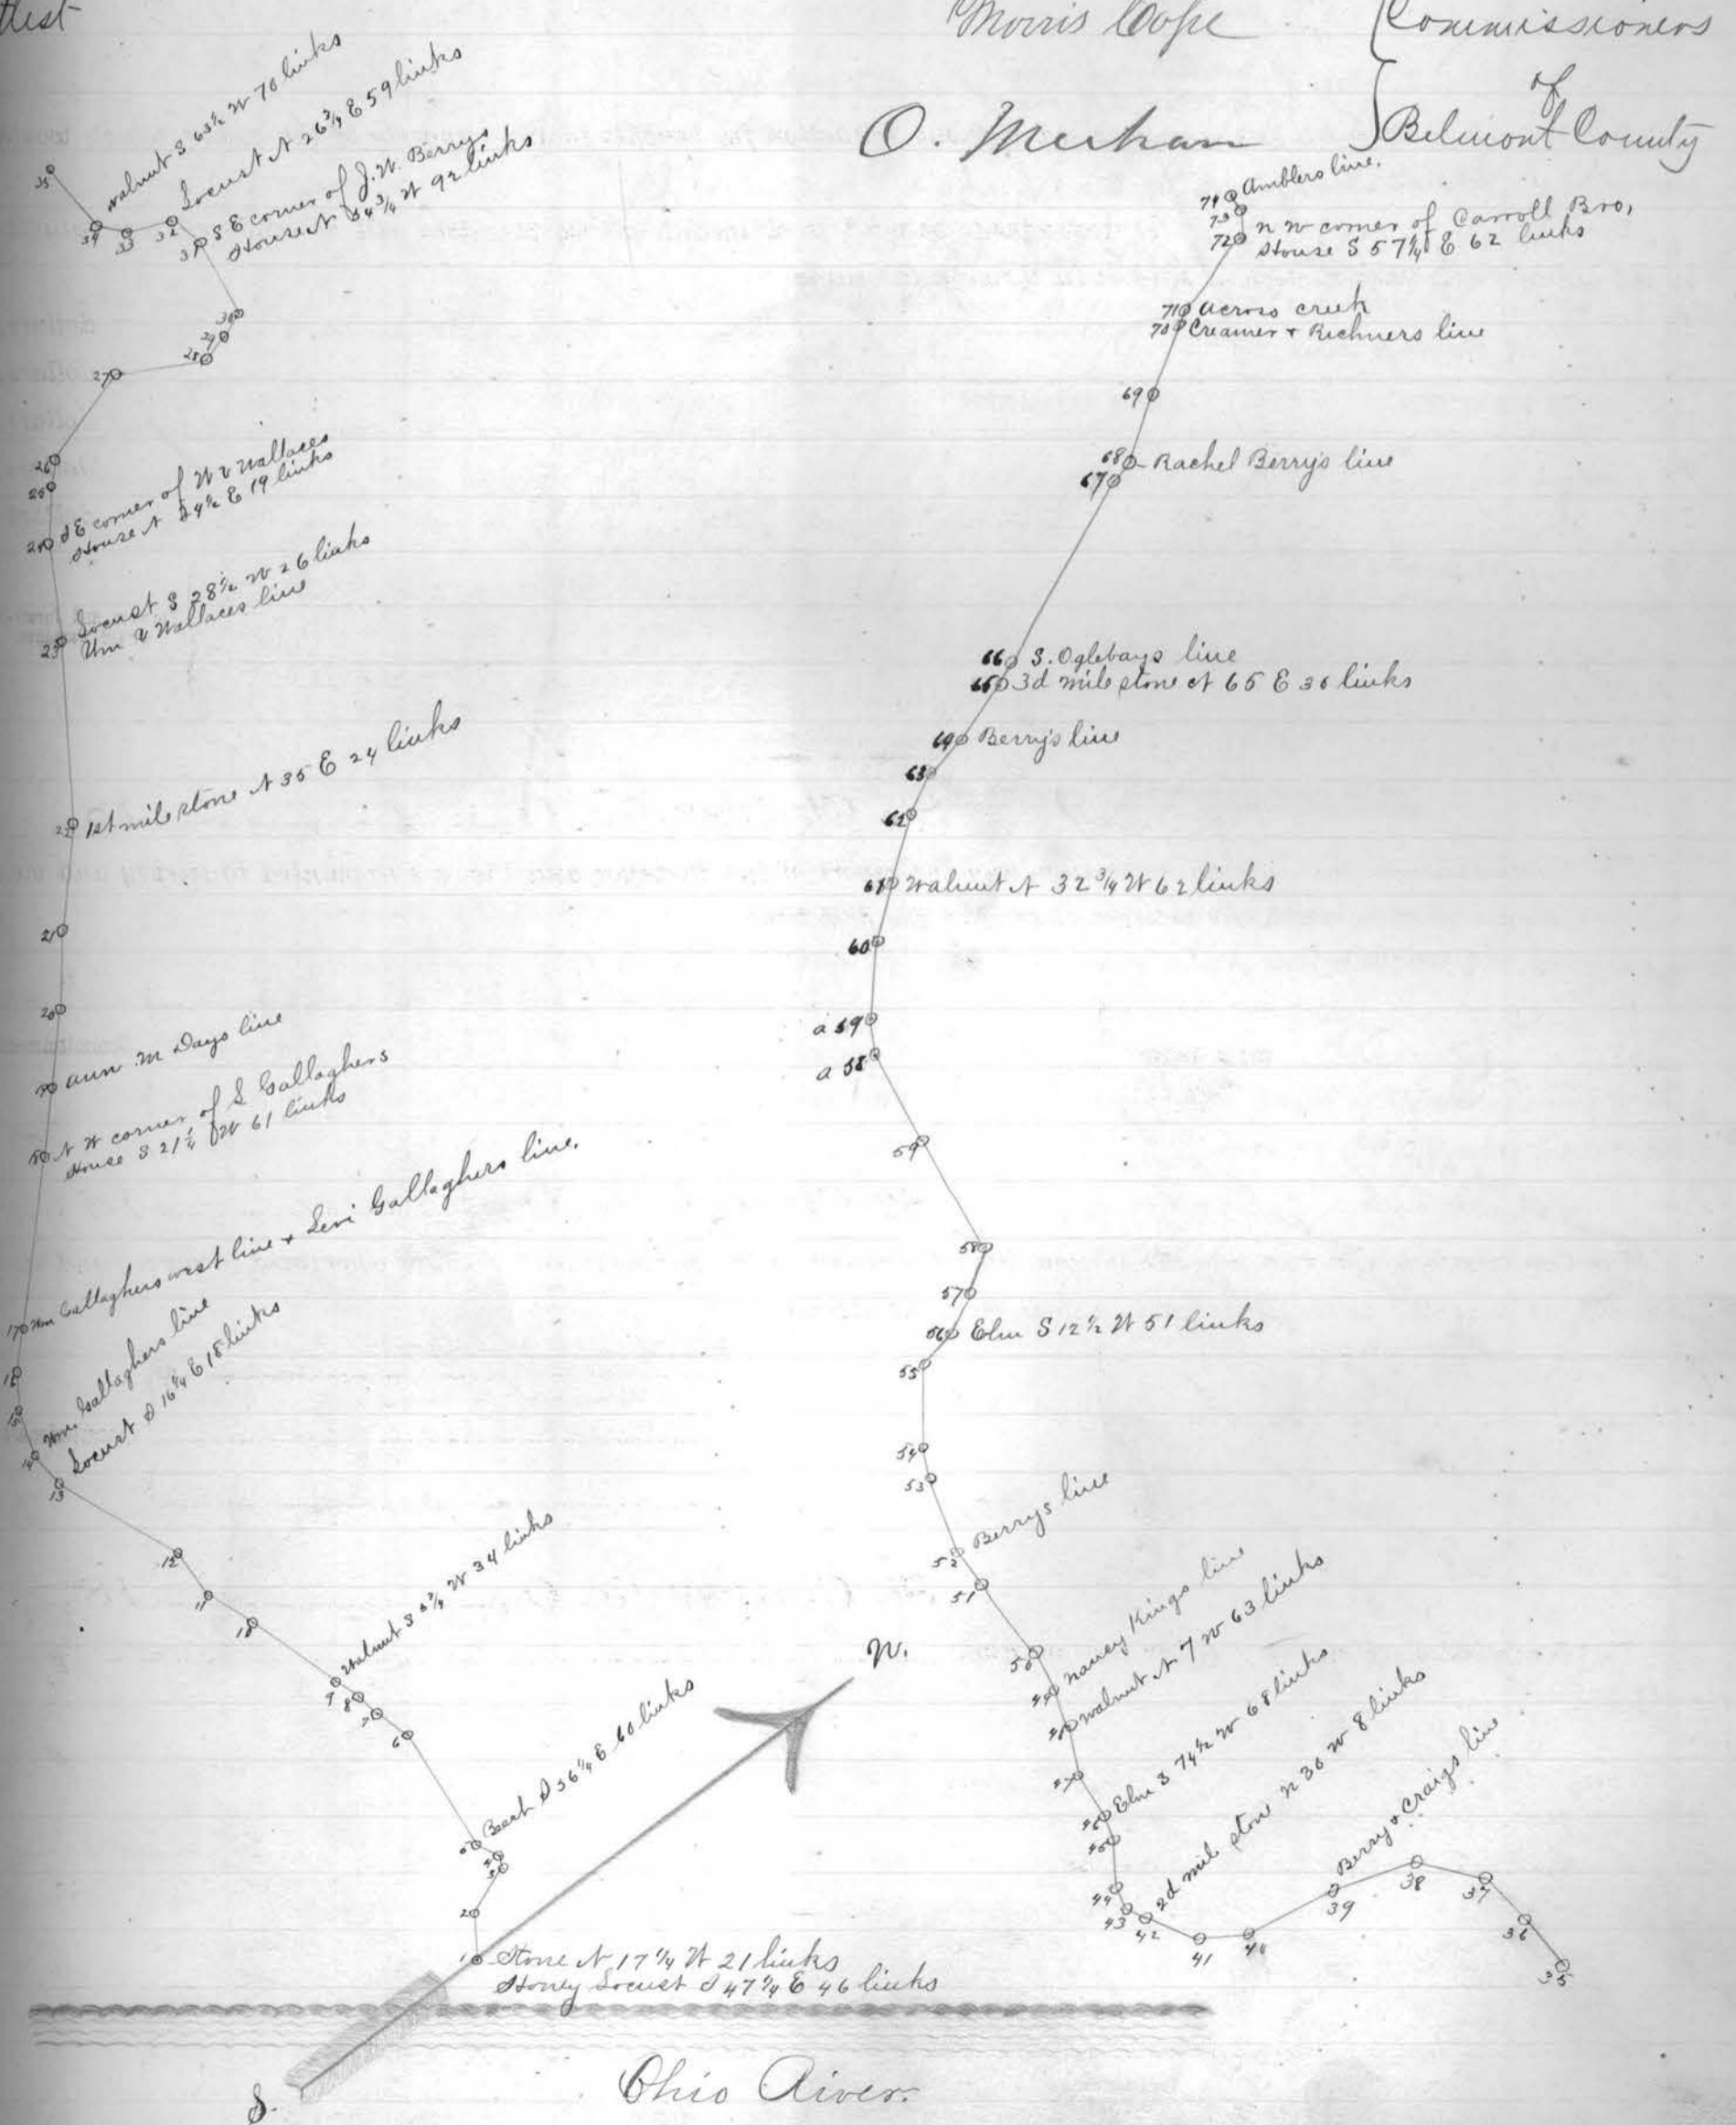 Morris Cope
Commissioners
of
Belmont County
O. Meehan
35
34
walnut S 63½ W 70 links
33
32
Locust N 26¾ E 59 links
31
S E corner of J. W. Berrys
House N 34¾ W 92 links
30
29
28
27
26
25
24
S E corner of W V Wallaces
House N 34½ E 19 links
23
Locust S 28½ W 26 links
Wm V Wallaces line
22
1st mile stone N 35 E 24 links
21
20
19
Ann M Days line
18
N W corner of L Gallaghers
House S 21¼ W 61 links
17
Wm Gallaghers west line + Levi Gallaghers line.
16
15
14
Wm. Gallaghers line
13
Locust S 16¼ E 18 links
12
11
10
9
Walnut S 3¾ W 34 links
8
7
6
5
Beach S 36¼ E 60 links
4
3
2
1
Stone N 17¼ W 21 links
Honey Locust S 47¼ E 46 links
N.
S.
Ohio River.
74 Amblers line.
73
72
N W corner of Carroll Bro,
House S 57¼ E 62 links
71 across creek
70 Creamer + Richners line
69
68 Rachel Berry's line
67
66 S. Oglebays line
65 3d mile stone N 65 E 36 links
64 Berry's line
63
62
61 Walnut N 32¾ W 62 links
60
a 59
a 58
59
58
57
56 Elm S 12½ W 51 links
55
54
53
52 Berrys line
51
50
49 Nancy Kings line
48 walnut N 7 W 63 links
47
46 Elm S 74½ W 68 links
45
44
43
42 2d mile stone N 30 W 8 links
41
40
39 Berry & Craigs line
38
37
36
35